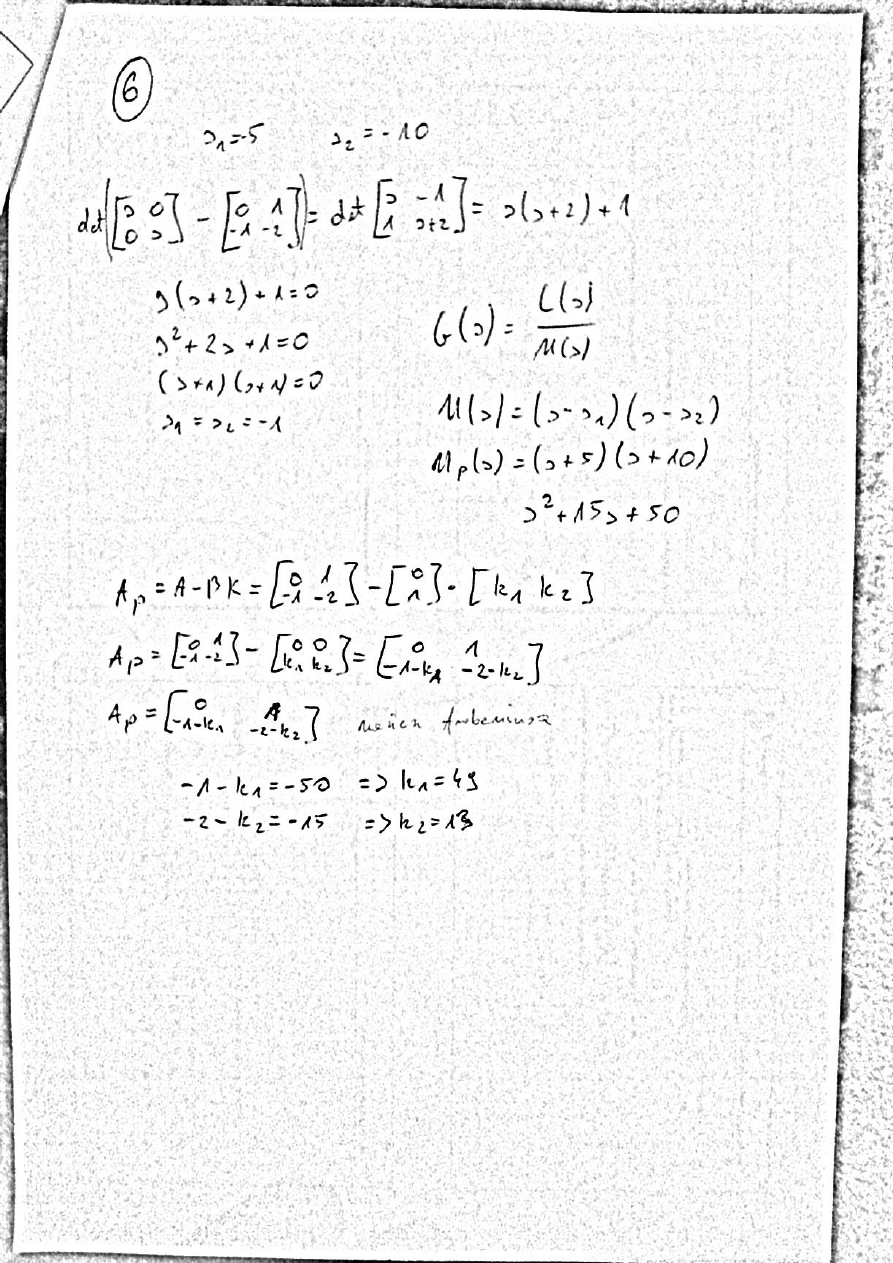 6
s₁=-5 s₂=-10
det([s 0; 0 s] - [0 1; -1 -2]) = det [s -1; 1 s+2] = s(s+2)+1
s(s+2)+1=0
s²+2s+1=0
(s+1)(s+1)=0
s₁=s₂=-1
G(s) = L(s)/M(s)
M(s)=(s-s₁)(s-s₂)
Mₚ(s)=(s+5)(s+10)
s²+15s+50
Aₚ=A-BK=[0 1; -1 -2]-[0; 1]·[k₁ k₂]
Aₚ=[0 1; -1 -2]-[0 0; k₁ k₂]=[0 1; -1-k₁ -2-k₂]
Aₚ=[0 1; -1-k₁ -2-k₂] Frobeniusa
-1-k₁=-50 => k₁=49
-2-k₂=-15 => k₂=13